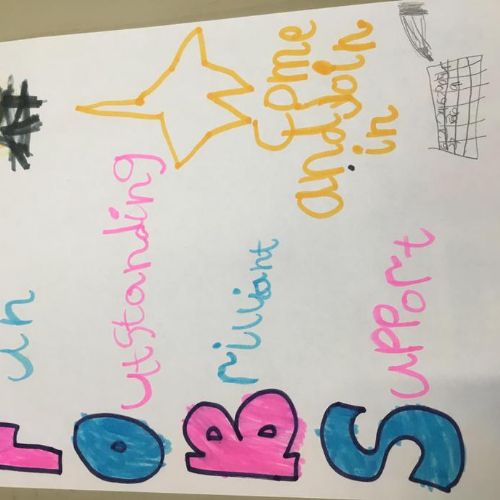 un
Outstanding
Brilliant
Support
Come
and Join
in